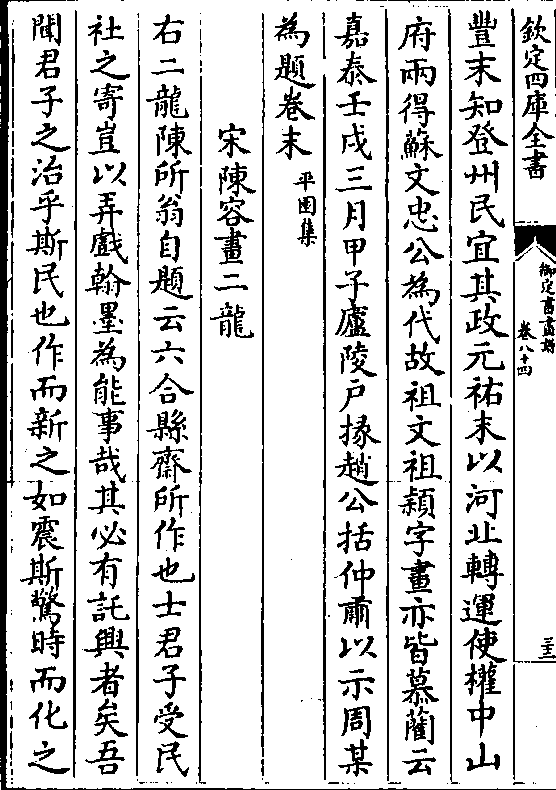 欽定四庫全書
御定書畫譜
卷八十四
三三
豐末知登州民宜其政元祐末以河北轉運使權中山
府兩得蘇文忠公為代故祖文祖頴字畫亦皆慕藺云
嘉泰壬戌三月甲子廬陵戶掾趙公括仲肅以示周某
為題卷末平園集
宋陳容畫二龍
右二龍陳所翁自題云六合縣齋所作也士君子受民
社之寄豈以弄戲翰墨為能事哉其必有託興者矣吾
聞君子之治乎斯民也作而新之如震斯驚時而化之